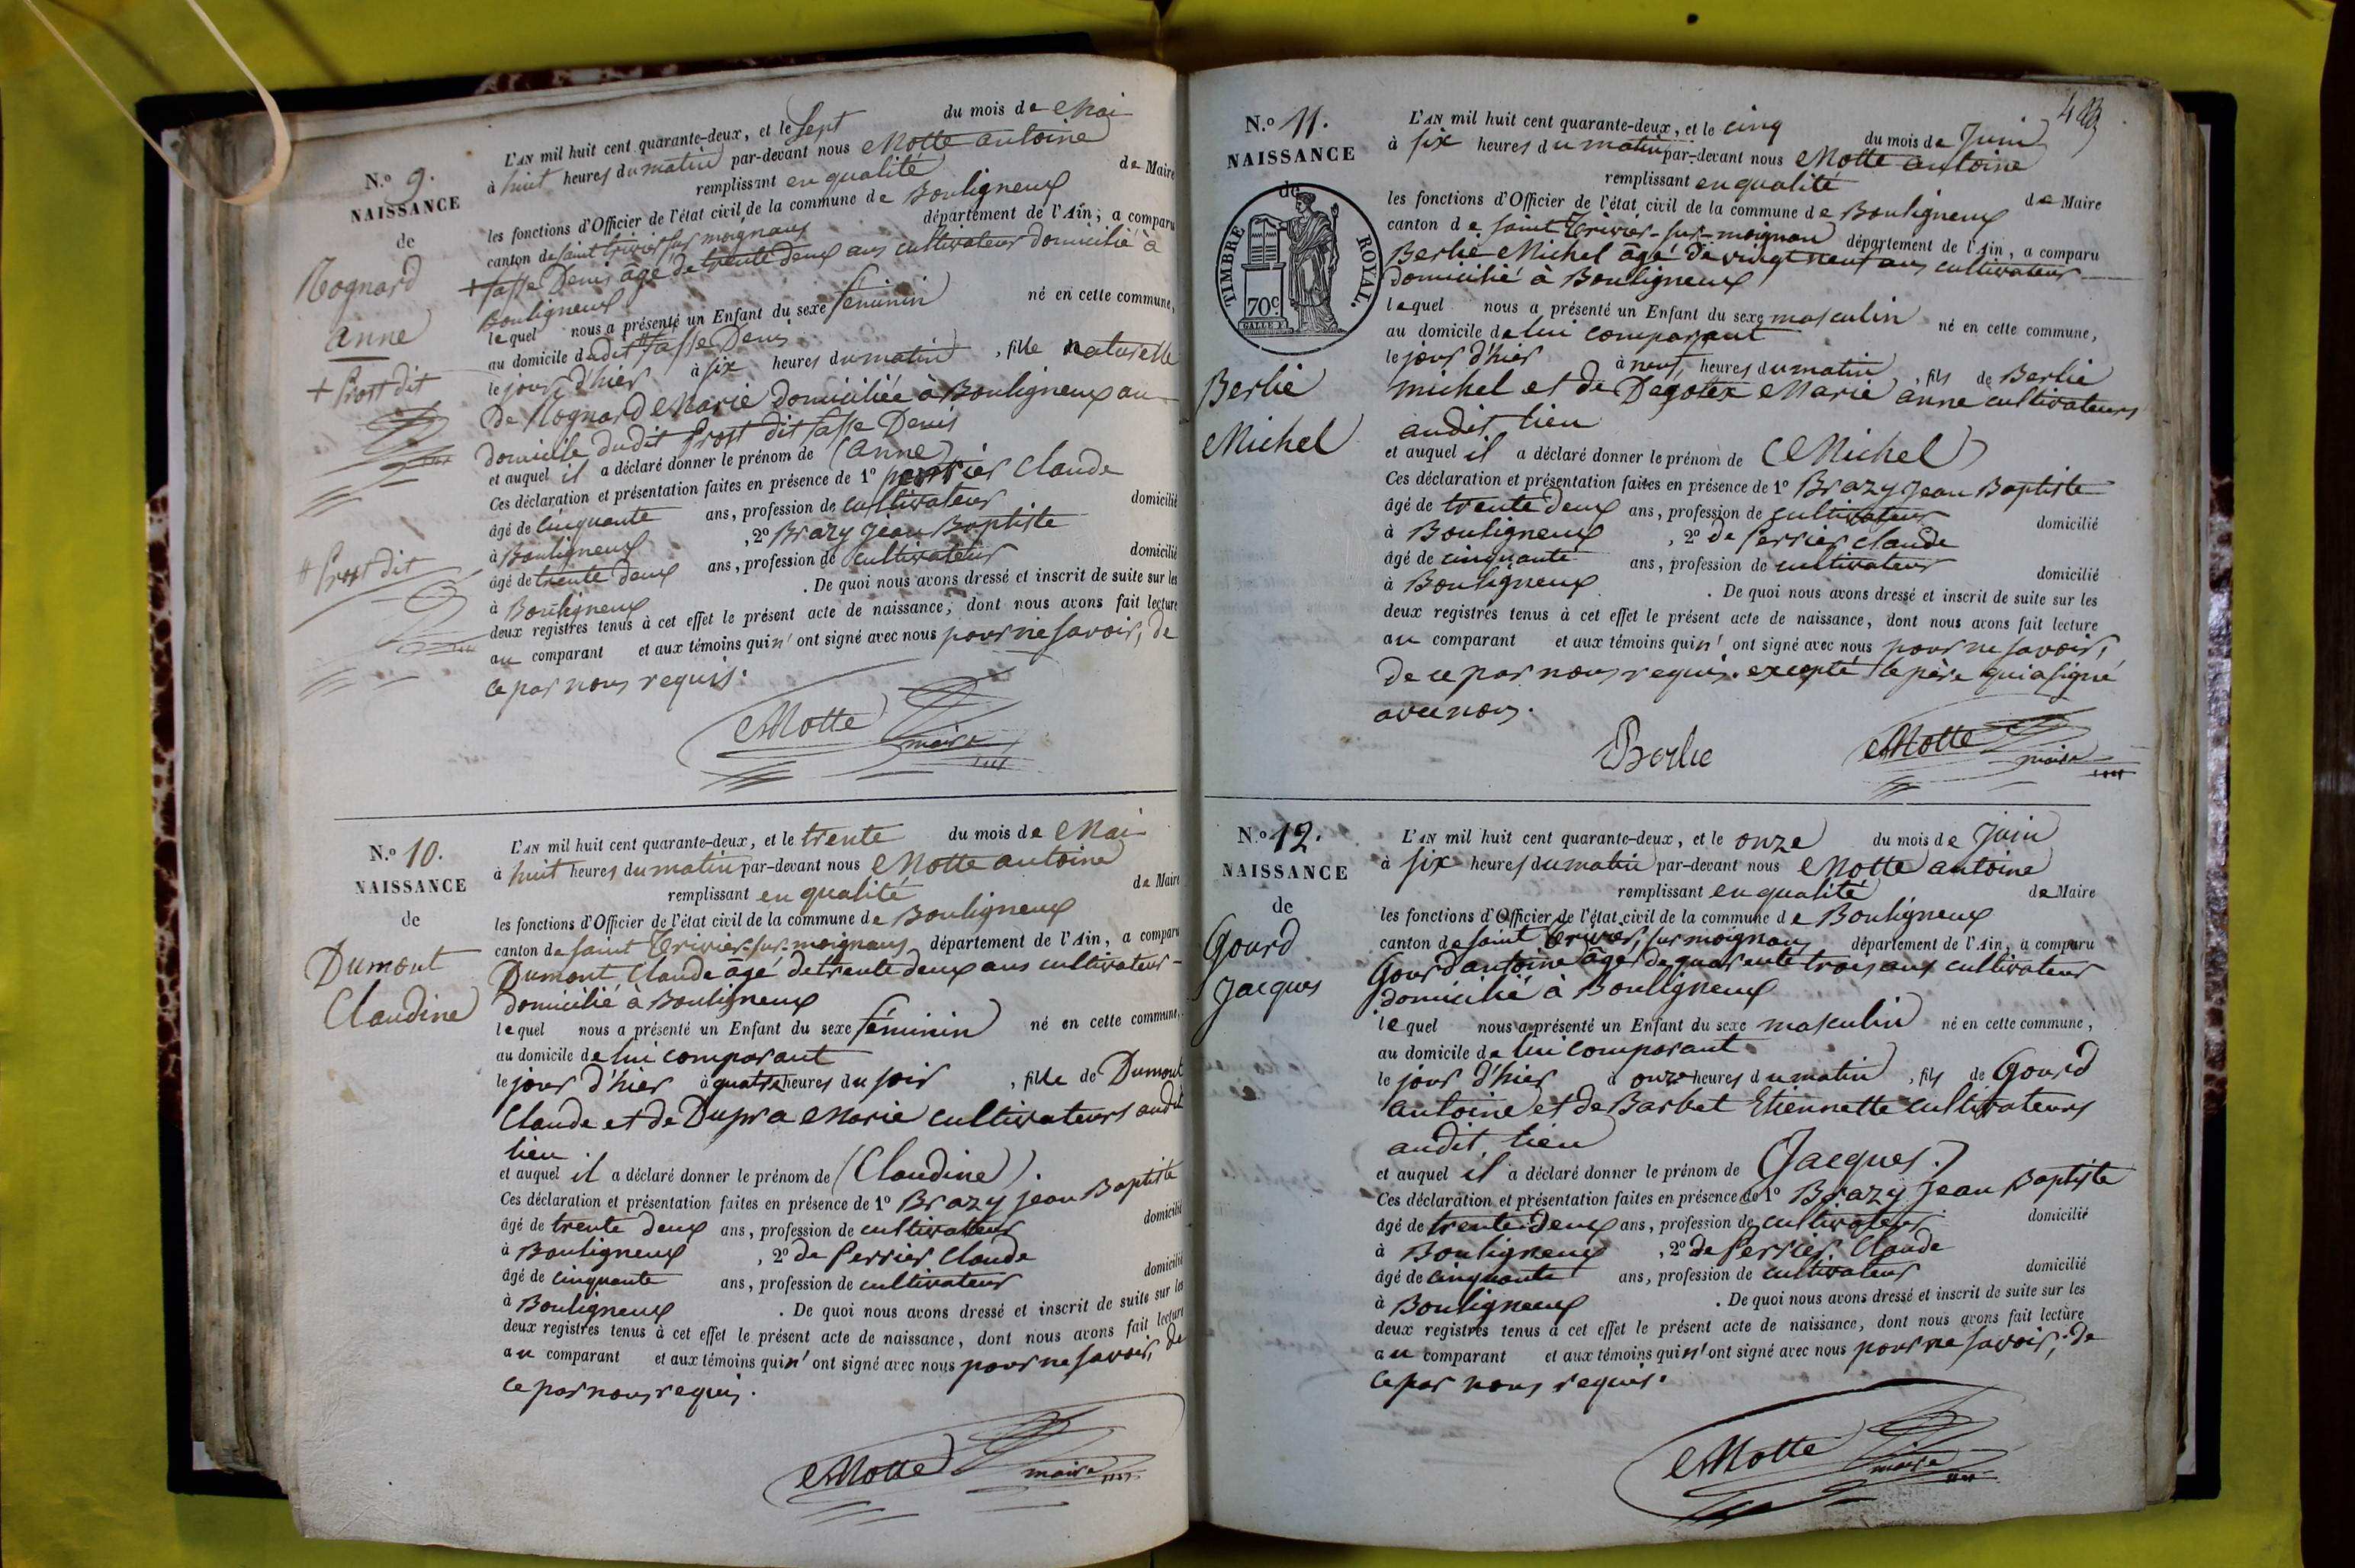 N.o 9.
NAISSANCE
de
Rognard
anne
+ Prost dit
# Prost dit
L'AN mil huit cent quarante-deux, et le Sept du mois de Mai
à huit heures du matin par-devant nous Motte antoine
remplissant en qualité de Maire
les fonctions d'Officier de l'état civil de la commune de Bouligneux
canton de saint trivier sur moignans département de l'Ain; a comparu
+ fasse Denis âgé de trente deux ans cultivateur domicilié à
Bouligneux
lequel nous a présenté un Enfant du sexe féminin né en cette commune,
au domicile dudit # fasse Denis
le jour d'hier à six heures du matin, fille naturelle
De Rognard Marie domiciliée à Bouligneux au
domicile dudit Prost dit fasse Denis
et auquel il a déclaré donner le prénom de (anne)
Ces déclaration et présentation faites en présence de 1o perrier Claude
âgé de cinquante ans, profession de cultivateur domicilié
à Bouligneux, 2o Brazy Jean Baptiste
âgé de trente deux ans, profession de cultivateur domicilié
à Bouligneux. De quoi nous avons dressé et inscrit de suite sur les
deux registres tenus à cet effet le présent acte de naissance, dont nous avons fait lecture
au comparant et aux témoins qui n'ont signé avec nous pour ne savoir, de
ce par nous requis.
Motte maire
N.o 10.
NAISSANCE
de
Dumont
Claudine
L'AN mil huit cent quarante-deux, et le trente du mois de Mai
à huit heures du matin par-devant nous Motte antoine
remplissant en qualité de Maire
les fonctions d'Officier de l'état civil de la commune de Bouligneux
canton de saint Trivier-sur-moignans département de l'Ain, a comparu
Dumont Claude âgé de trente deux ans cultivateur
domicilié à Bouligneux
lequel nous a présenté un Enfant du sexe féminin né en cette commune,
au domicile de lui comparant
le jour d'hier à quatre heures du soir, fille de Dumont
Claude et de Dupra Marie cultivateurs audit
lieu
et auquel il a déclaré donner le prénom de (Claudine).
Ces déclaration et présentation faites en présence de 1o Brazy jean Baptiste
âgé de trente deux ans, profession de cultivateur domicilié
à Bouligneux, 2o de Perrier Claude
âgé de cinquante ans, profession de cultivateur domicilié
à Bouligneux. De quoi nous avons dressé et inscrit de suite sur les
deux registres tenus à cet effet le présent acte de naissance, dont nous avons fait lecture
au comparant et aux témoins qui n'ont signé avec nous pour ne savoir, de
ce par nous requis.
Motte maire
N.o 11.
NAISSANCE
de
TIMBRE ROYAL.
70c.
Berlie
Michel
L'AN mil huit cent quarante-deux, et le cinq du mois de Juin
à six heures du matin par-devant nous Motte antoine
remplissant en qualité de Maire
les fonctions d'Officier de l'état civil de la commune de Bouligneux
canton de saint Trivier-sur-moignan département de l'Ain, a comparu
Berlie Michel âgé de vingt neuf ans cultivateur
domicilié à Bouligneux
lequel nous a présenté un Enfant du sexe masculin né en cette commune,
au domicile de lui comparant
le jour d'hier à neuf heures du matin, fils de Berlie
michel et de Degotex Marie anne cultivateurs
audit lieu
et auquel il a déclaré donner le prénom de (Michel)
Ces déclaration et présentation faites en présence de 1o Brazy Jean Baptiste
âgé de trente deux ans, profession de cultivateur domicilié
à Bouligneux, 2o de Perrier Claude
âgé de cinquante ans, profession de cultivateur domicilié
à Bouligneux. De quoi nous avons dressé et inscrit de suite sur les
deux registres tenus à cet effet le présent acte de naissance, dont nous avons fait lecture
au comparant et aux témoins qui n'ont signé avec nous pour ne savoir,
de ce par nous requis. excepté le père qui a signé
avec nous.
Berlie Motte maire
N.o 12.
NAISSANCE
de
Gourd
Jacques
L'AN mil huit cent quarante-deux, et le onze du mois de Juin
à six heures du matin par-devant nous Motte antoine
remplissant en qualité de Maire
les fonctions d'Officier de l'état civil de la commune de Bouligneux
canton de saint Trivier, sur moignans département de l'Ain, a comparu
Gourd antoine âgé de quarente trois ans cultivateur
domicilié à Bouligneux
lequel nous a présenté un Enfant du sexe masculin né en cette commune,
au domicile de lui comparant
le jour d'hier à onze heures du matin, fils de Gourd
antoine et de Barbet Etiennette cultivateurs
audit lieu
et auquel il a déclaré donner le prénom de (Jacques.)
Ces déclaration et présentation faites en présence de 1o Brazy Jean Baptiste
âgé de trente deux ans, profession de cultivateur domicilié
à Bouligneux, 2o de Perrier Claude
âgé de cinquante ans, profession de cultivateur domicilié
à Bouligneux. De quoi nous avons dressé et inscrit de suite sur les
deux registres tenus à cet effet le présent acte de naissance, dont nous avons fait lecture
au comparant et aux témoins qui n'ont signé avec nous pour ne savoir, de
ce par nous requis.
Motte maire